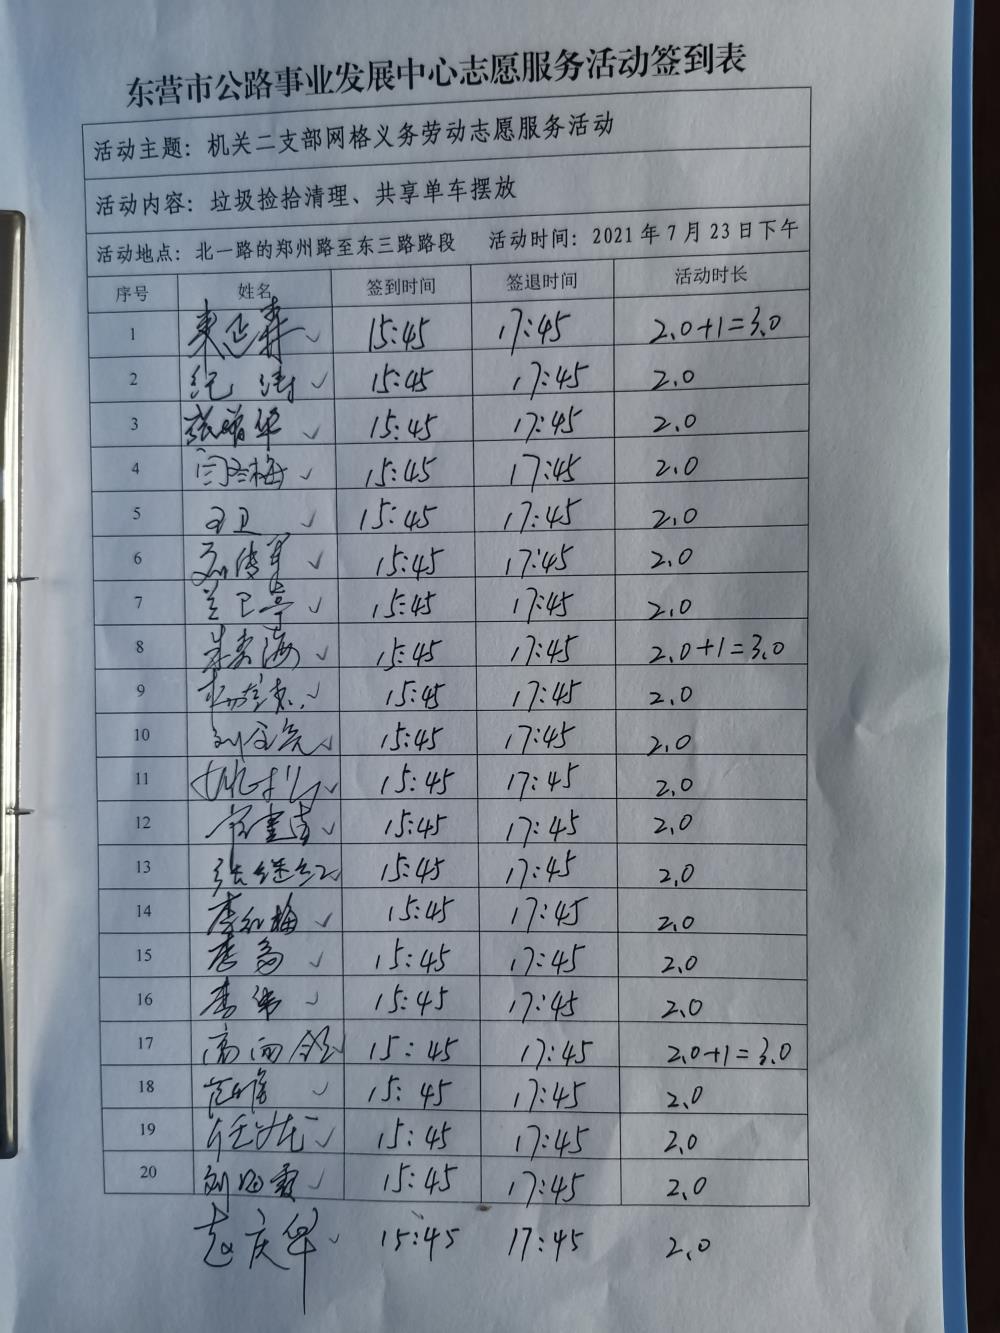 东营市公路事业发展中心志愿服务活动签到表
活动主题：机关二支部网格义务劳动志愿服务活动
活动内容：垃圾捡拾清理、共享单车摆放
活动地点：北一路的郑州路至东三路路段 活动时间：2021年7月23日下午
序号 姓名 签到时间 签退时间 活动时长
1 15:45 17:45 2.0+1=3.0
2 纪涛 15:45 17:45 2.0
3 15:45 17:45 2.0
4 闫冬梅 15:45 17:45 2.0
5 王卫 15:45 17:45 2.0
6 15:45 17:45 2.0
7 兰卫亭 15:45 17:45 2.0
8 15:45 17:45 2.0+1=3.0
9 15:45 17:45 2.0
10 15:45 17:45 2.0
11 15:45 17:45 2.0
12 15:45 17:45 2.0
13 张继红 15:45 17:45 2.0
14 李红梅 15:45 17:45 2.0
15 15:45 17:45 2.0
16 李伟 15:45 17:45 2.0
17 15:45 17:45 2.0+1=3.0
18 15:45 17:45 2.0
19 15:45 17:45 2.0
20 15:45 17:45 2.0
赵庆华 15:45 17:45 2.0